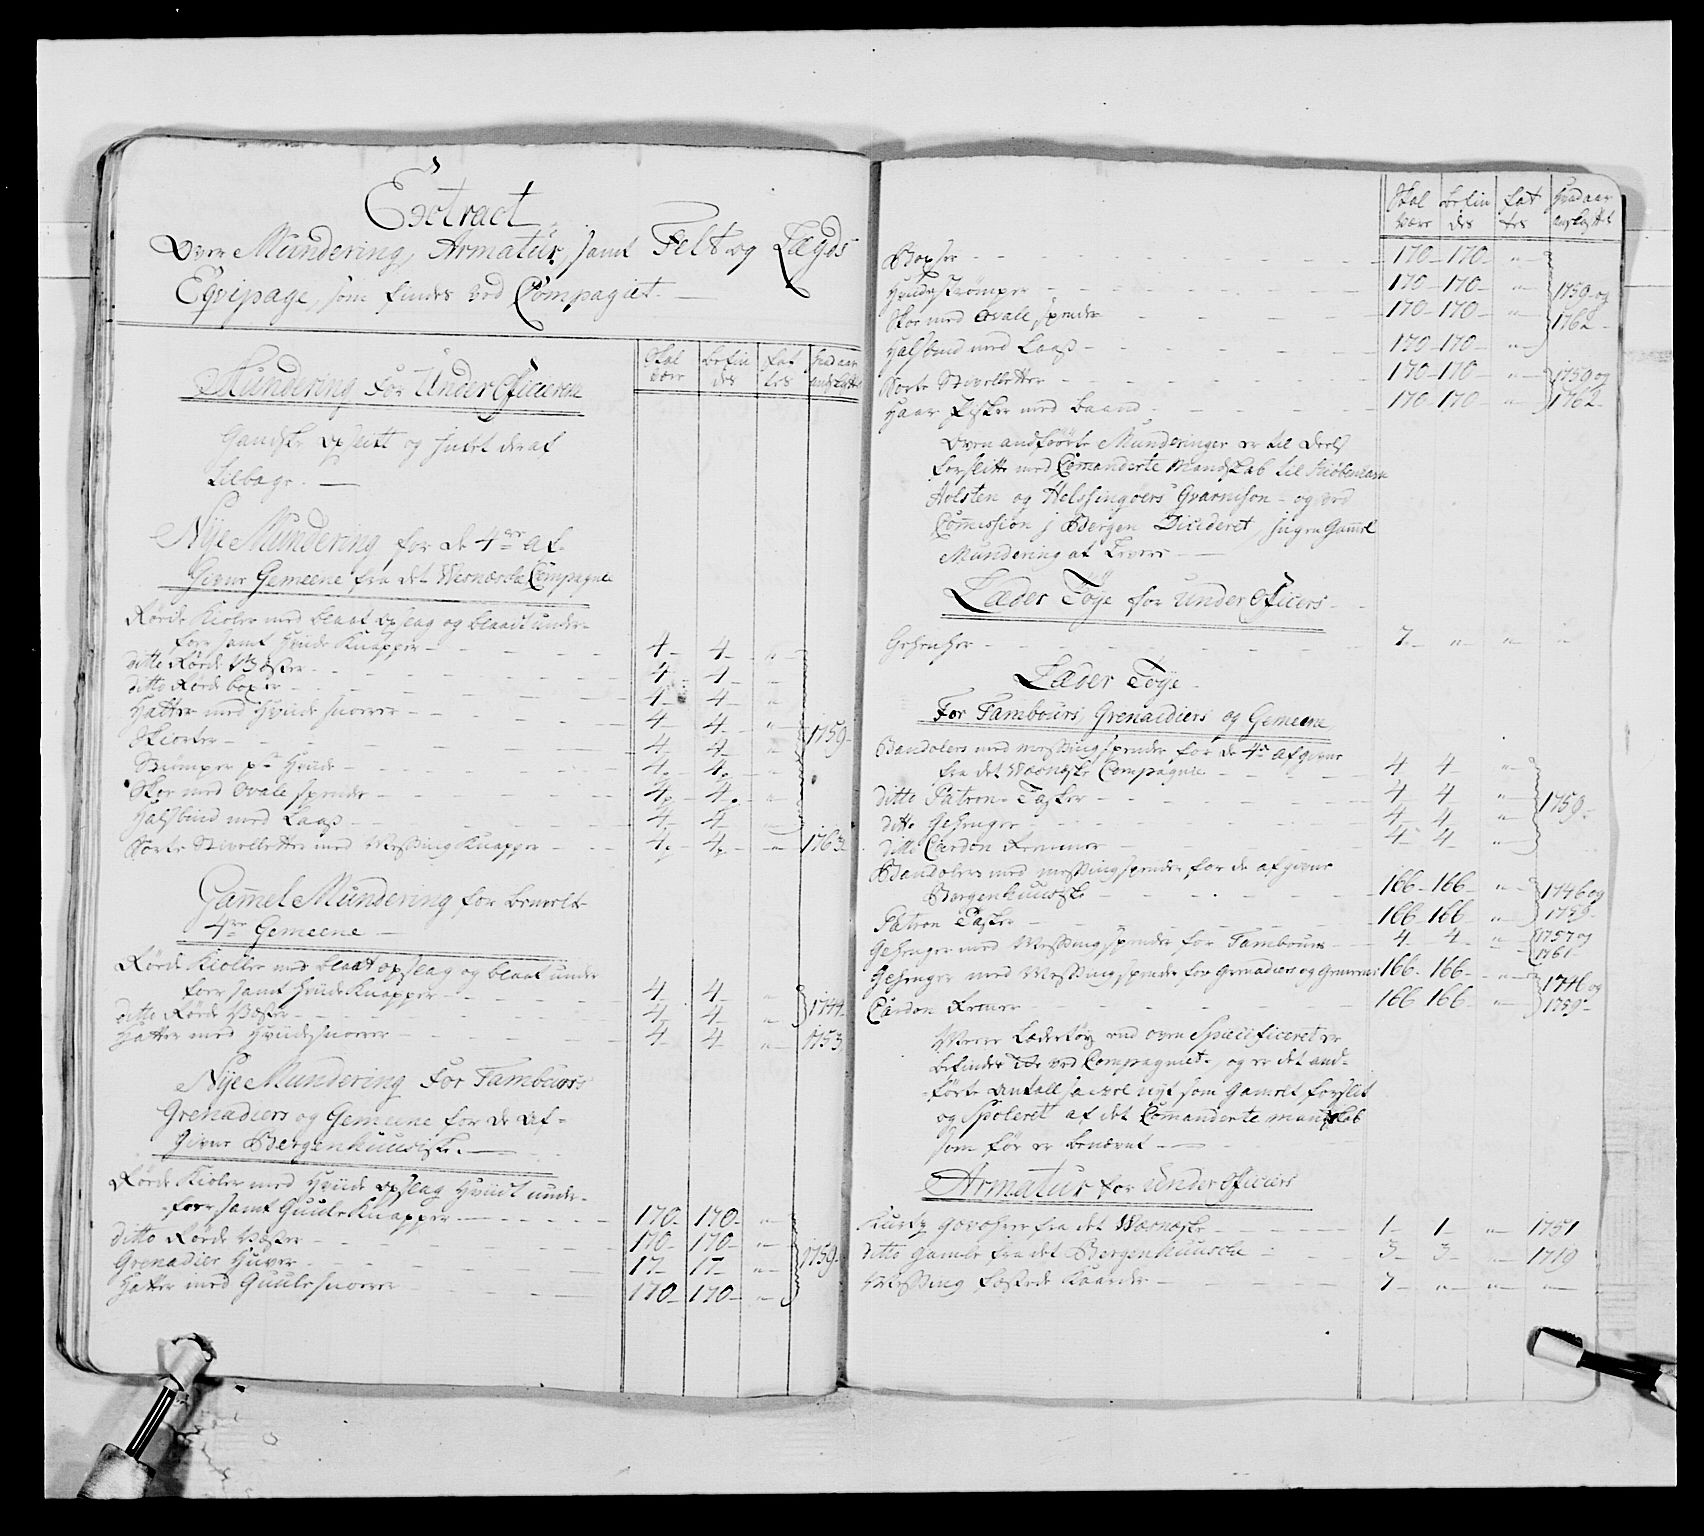 Extract
Over Mundering, Armatur, samt Felt og Lægds
Eqvipage, som findes ved Compagiet. —
Skal være | Befin des | Fat tes | Hvad aar anskaffet
Mundering for Under Officierer
Gandske opslitt og intet deraf
tilbage. —
Nÿe Mundering for de 4re af-
givne Gemeene fra det Wernæske Compagnie
Røde Kioler med blaat opslag og blaat under-
foer samt Hvide Knapper — 4 — 4 — "
ditto Røde Væster — 4 — 4 — "
ditto Røde boxer — 4 — 4 — "
Hatter med Hvide snorer — 4 — 4 — "
Skiorter — 4 — 4 — " 1759
Strømper pr Hvide — 4 p — 4 p — "
Skoe med Ovale spender — 4 p — 4 p — "
Halsbind med Laas — 4 — 4 — "
Sorte Stivelletter med Messing Knapper — 4 p — 4 p — " 1763
Gamel Mundering for benevlte
4re Gemeene —
Røde Kioller med blaat opslag og blaat under
foer samt Hvide Knapper — 4 — 4 — "
ditto Røde Væster — 4 — 4 — " 1744
Hatter med Hvide snorer — 4 — 4 — " 1753
Nÿe Mundering for Tambours
Grenadiers og Gemeene for de af-
givne Bergenhuusiske. —
Røde Kioler med Hviidt opslag Hviidt under-
foer samt Guule Knapper — 170 — 170 — "
ditto Røde Væster — 170 — 170 — "
Grenadier Huver — 17 — 17 — " 1759
Hatter med Guule snorer — 170 — 170 — "
Skal være | Befin des | Fat tes | Hvad aar anskaffet
Boxser — 170 — 170 — "
Hvide strømper — 170 — 170 — " 1759 og
Skoe med Ovale spender — 170 — 170 — " 1762
Halsbind med Laas — 170 — 170 — "
Sorte Stivelletter — 170 — 170 — " 1759 og
Haar Pisker med baand — 170 — 170 — " 1762
Oven andførte Munderinger er til deels
forslitte med Comanderte Mandskab til Kiøbenhavn
Holsten og Helssingøers Guarnison — og ved
Commission j Bergen Decideret, ingen Gamel
Mundering at levere —
Læder Tøÿe for Under Officers
Gehenger — 7 — " — " — "
Læder Tøÿe
For Tambours, Grenaidiers og Gemeene
Bandolers med messing spender for de 4re afgivne
fra det Wernæske Compagnie — 4 — 4 — "
ditto Patron-Tasker — 4 — 4 — " 1759
ditto Gehenger — 4 — 4 — "
ditto Cardon Remmer — 4 — 4 — "
Bandolers med messing spender for de afgivne
Bergenhuusiske — 166 — 166 — " 1746 og
Patron Tasker — 166 — 166 — " 1759
Gehenger med Messing spender for Tambours — 4 — 4 — " 1757 og 1761
Gehenger med Messing spender for Grenadiers og Gemeene 166 — 166 — " 1746 og
Cardon Remer — 166 — 166 — " 1759
Meere Læder tøy end oven Specificeret er
befindes ved Compagniet, og er det and-
førte antall saavel nyt som Gamelt forslit
og Spoleret af det Comanderte mandskab
som før er benævnt —
Armatur for Under Officiers
Kurtz gevehrer fra det Wærnæske — 1 — 1 — " 1751
ditto gamle fra det Bergenhuusche — 3 — 3 — " 1719
Messing fæstede Kaarder — 7 — " — " — "